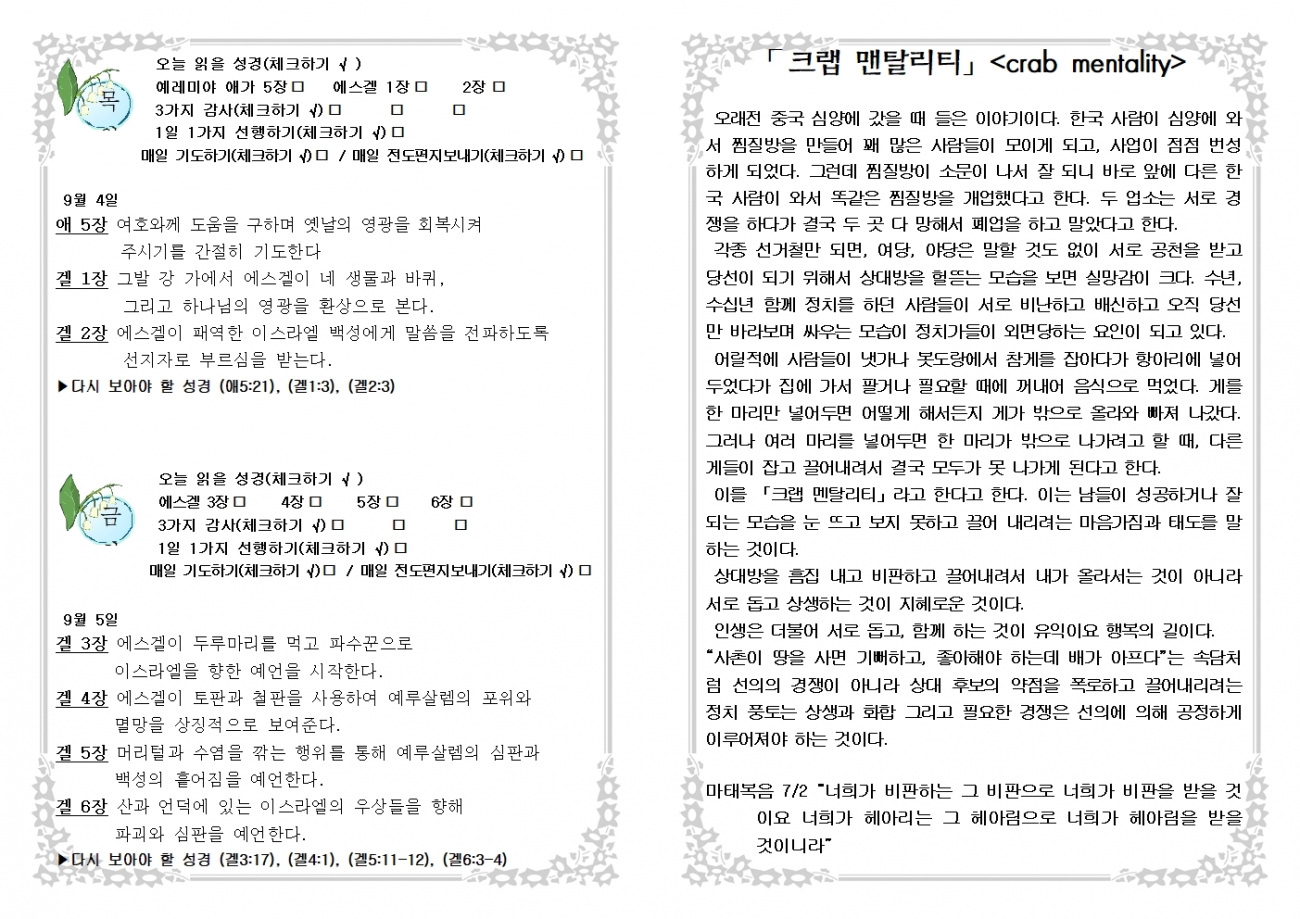 오늘 읽을 성경(체크하기 √ )
목
예레미야 애가 5장 □ 에스겔 1장 □ 2장 □
3가지 감사(체크하기 √) □ □ □
1일 1가지 선행하기(체크하기 √) □
매일 기도하기(체크하기 √) □ / 매일 전도편지보내기(체크하기 √) □
9월 4일
애 5장 여호와께 도움을 구하며 옛날의 영광을 회복시켜
주시기를 간절히 기도한다
겔 1장 그발 강 가에서 에스겔이 네 생물과 바퀴,
그리고 하나님의 영광을 환상으로 본다.
겔 2장 에스겔이 패역한 이스라엘 백성에게 말씀을 전파하도록
선지자로 부르심을 받는다.
▶다시 보아야 할 성경 (애5:21), (겔1:3), (겔2:3)
오늘 읽을 성경(체크하기 √ )
금
에스겔 3장 □ 4장 □ 5장 □ 6장 □
3가지 감사(체크하기 √) □ □ □
1일 1가지 선행하기(체크하기 √) □
매일 기도하기(체크하기 √) □ / 매일 전도편지보내기(체크하기 √) □
9월 5일
겔 3장 에스겔이 두루마리를 먹고 파수꾼으로
이스라엘을 향한 예언을 시작한다.
겔 4장 에스겔이 토판과 철판을 사용하여 예루살렘의 포위와
멸망을 상징적으로 보여준다.
겔 5장 머리털과 수염을 깎는 행위를 통해 예루살렘의 심판과
백성의 흩어짐을 예언한다.
겔 6장 산과 언덕에 있는 이스라엘의 우상들을 향해
파괴와 심판을 예언한다.
▶다시 보아야 할 성경 (겔3:17), (겔4:1), (겔5:11-12), (겔6:3-4)
「 크랩 맨탈리티」 <crab mentality>
오래전 중국 심양에 갔을 때 들은 이야기이다. 한국 사람이 심양에 와
서 찜질방을 만들어 꽤 많은 사람들이 모이게 되고, 사업이 점점 번성
하게 되었다. 그런데 찜질방이 소문이 나서 잘 되니 바로 앞에 다른 한
국 사람이 와서 똑같은 찜질방을 개업했다고 한다. 두 업소는 서로 경
쟁을 하다가 결국 두 곳 다 망해서 폐업을 하고 말았다고 한다.
각종 선거철만 되면, 여당, 야당은 말할 것도 없이 서로 공천을 받고
당선이 되기 위해서 상대방을 헐뜯는 모습을 보면 실망감이 크다. 수년,
수십년 함께 정치를 하던 사람들이 서로 비난하고 배신하고 오직 당선
만 바라보며 싸우는 모습이 정치가들이 외면당하는 요인이 되고 있다.
어릴적에 사람들이 냇가나 봇도랑에서 참게를 잡아다가 항아리에 넣어
두었다가 집에 가서 팔거나 필요할 때에 꺼내어 음식으로 먹었다. 게를
한 마리만 넣어두면 어떻게 해서든지 게가 밖으로 올라와 빠져 나갔다.
그러나 여러 마리를 넣어두면 한 마리가 밖으로 나가려고 할 때, 다른
게들이 잡고 끌어내려서 결국 모두가 못 나가게 된다고 한다.
이를 「크랩 멘탈리티」라고 한다고 한다. 이는 남들이 성공하거나 잘
되는 모습을 눈 뜨고 보지 못하고 끌어 내리려는 마음가짐과 태도를 말
하는 것이다.
상대방을 흠집 내고 비판하고 끌어내려서 내가 올라서는 것이 아니라
서로 돕고 상생하는 것이 지혜로운 것이다.
인생은 더불어 서로 돕고, 함께 하는 것이 유익이요 행복의 길이다.
“사촌이 땅을 사면 기뻐하고, 좋아해야 하는데 배가 아프다”는 속담처
럼 선의의 경쟁이 아니라 상대 후보의 약점을 폭로하고 끌어내리려는
정치 풍토는 상생과 화합 그리고 필요한 경쟁은 선의에 의해 공정하게
이루어져야 하는 것이다.
마태복음 7/2 “너희가 비판하는 그 비판으로 너희가 비판을 받을 것
이요 너희가 헤아리는 그 헤아림으로 너희가 헤아림을 받을
것이니라”